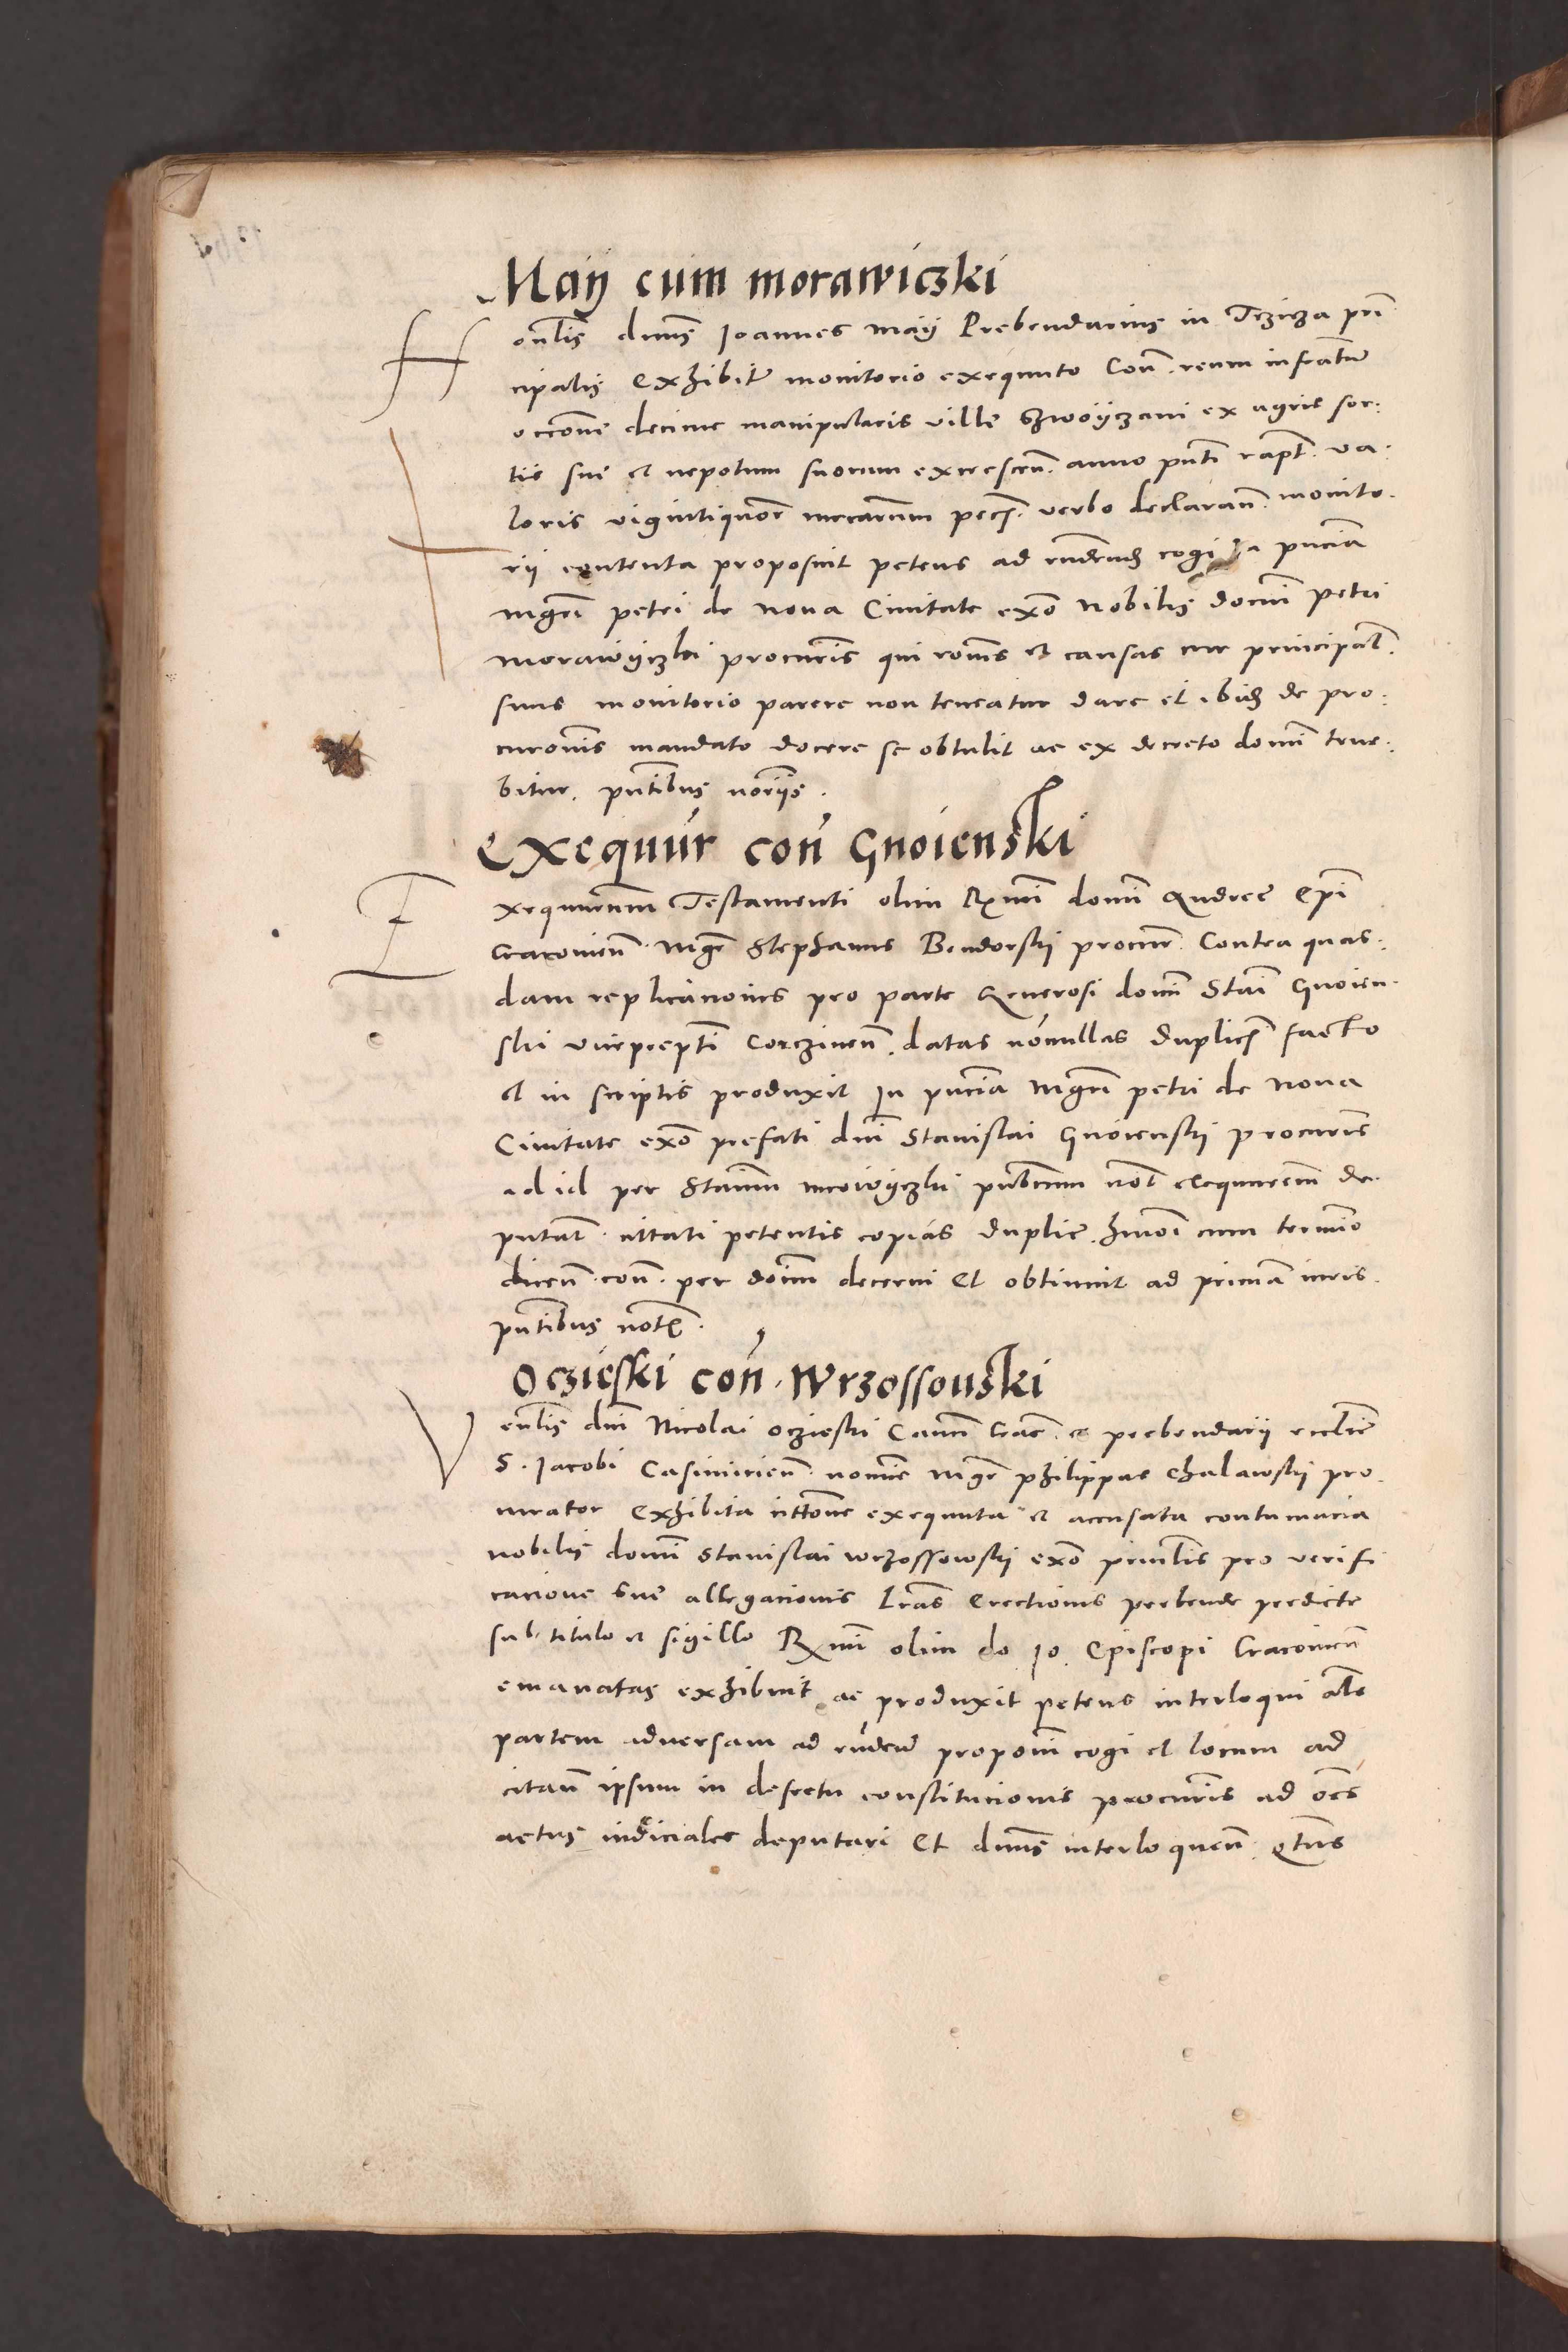 Maÿ cum morawiczki
Honlis dnus Joannes Maÿ Prebendarius in Trzicza prin
cipalis Exhibito monitorio exequuto Con. reum infrascriptum
occone decime manipularis ville Szwoÿczani ex agris sor:
tis sue et nepotum suorum excrescen. anno pnti rapt. va:
loris vigintiquor mrcarum pecs. verbo declaran. monito.
rii contenta proposuit petens ad rndendum cogi In pncia
mgri petri de Nova Civitate exo Nobilis domi petri
Morawÿczki procuris qui rones et causas cur principal.
suus monitorio parere non teneatur dare et ibidem de pro:
curonis mandato docere se obtulit ac ex decreto domi tene:
bitur. pntibus noriis.
Exequur con Gnoienski
Exequutorum Testamenti olim Rmi domi Andree Epi
Cracovien. Mgr Stephanus Bendorski procur. Contra quas:
dam replicanoines pro parte Generosi domi Stai Gnoien.
ski vicepcepti Corczinen. datas nonullas duplics facto
et in scriptis produxit In pncia Mgri petri de Nova
Civitate exo prefati dni Stanislai Gnoienski procuris
ad id per Stanm mrowÿczki publicum not exequutorem de.
putat. citati petentis copias duplic. hmoi cum termino
dicen. con. per doim decerni Et obtinuit ad primam iuris.
pntibus notis.
Oczieski con. Wrzossouski
Venlis dni Nicolai Oczieski Canci Crac. et prebendarii ecclie
S. Jacobi Casimirien. nomine Mgr philippus Chalawski pro.
curator Exhibita citone exequuta et accusata contumacia
nobilis domi Stanislai Wrzossowski exo princlis pro verifi
cacione sue allegacionis lras Erectionis prebende predicte
sub titulo et sigillo Rmi olim do Jo. Episcopi Cracovien
emanatas exhibuit ac produxit petens interloqui als
partem adversam ad rndendum proponi cogi et locum ad
citan ipsum in defectu constitucionis procuris ad oes
actus iudiciales deputari Et dnus interloquen. qtus